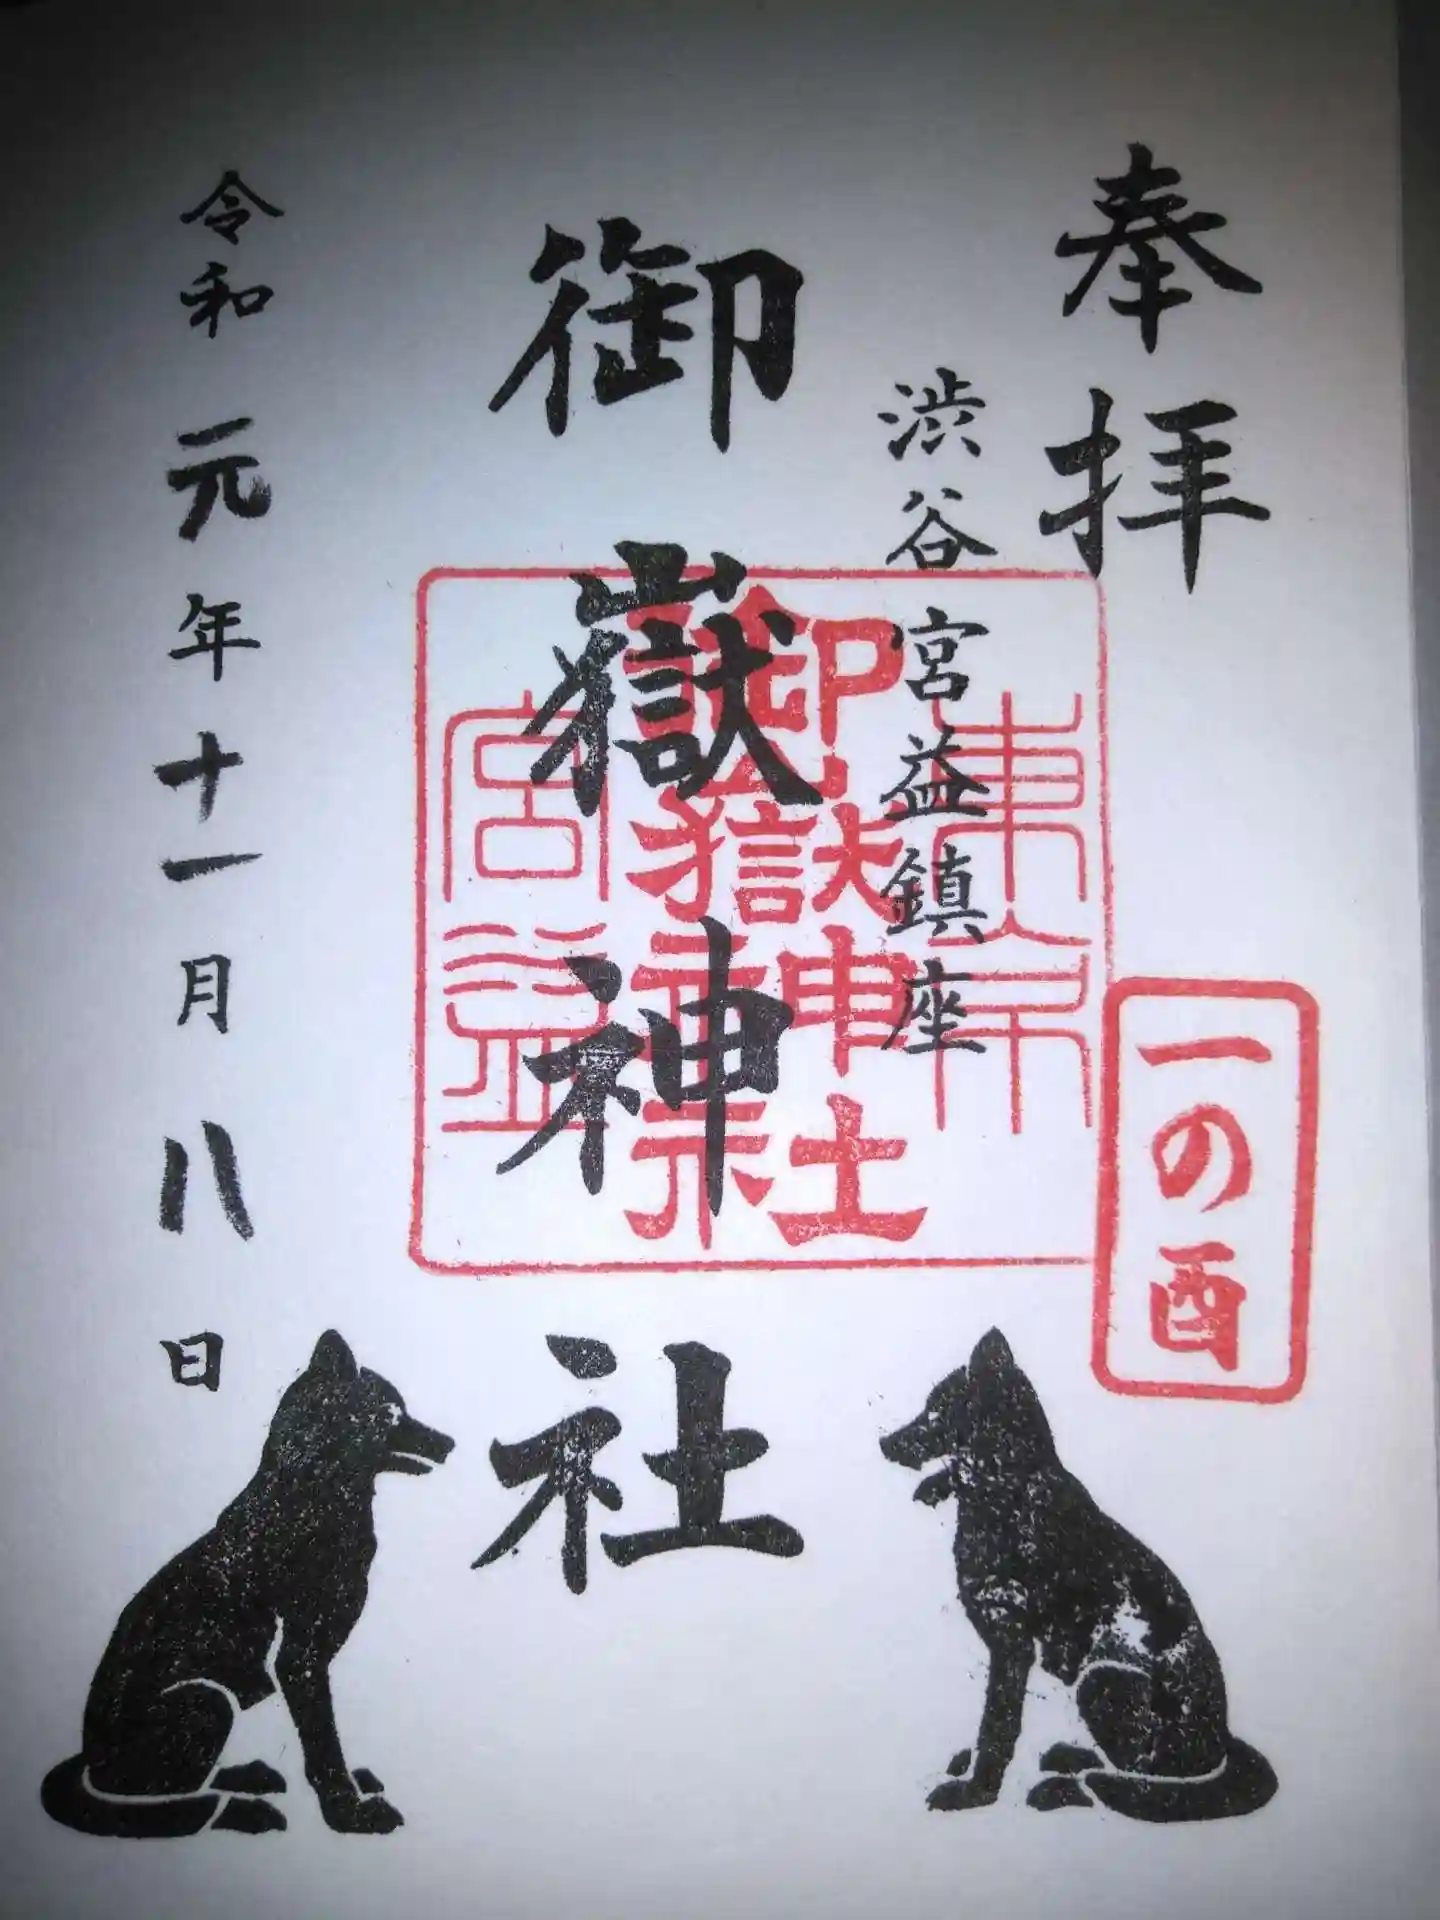 奉拝
渋谷宮益鎮座
御嶽神社
令和元年十一月八日
東京
御嶽神社
宮益
一の酉